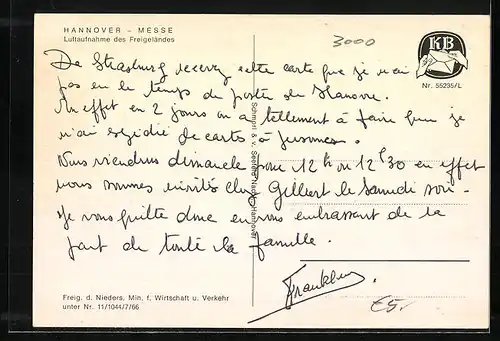 HANNOVER - MESSE
Luftaufnahme des Freigeländes
3000
KB
Nr. 55235/L
De Strasbourg recevez cette carte que je n'ai
pas eu le temps de poster de Hanovre.
En effet en 2 jours on a tellement à faire que je
n'ai expédié de cartes à personnes.
Nous viendrons dimanche vers 12h ou 12h30 en effet
nous sommes invités chez Gilbert le samedi soir
Je vous quitte donc en vous embrassant de la
part de toute la famille.
Franklin
€5,-
Schöning & Co. + Gebrüder Schmidt
Freig. d. Nieders. Min. f. Wirtschaft u. Verkehr
unter Nr. 11/1044/7/66